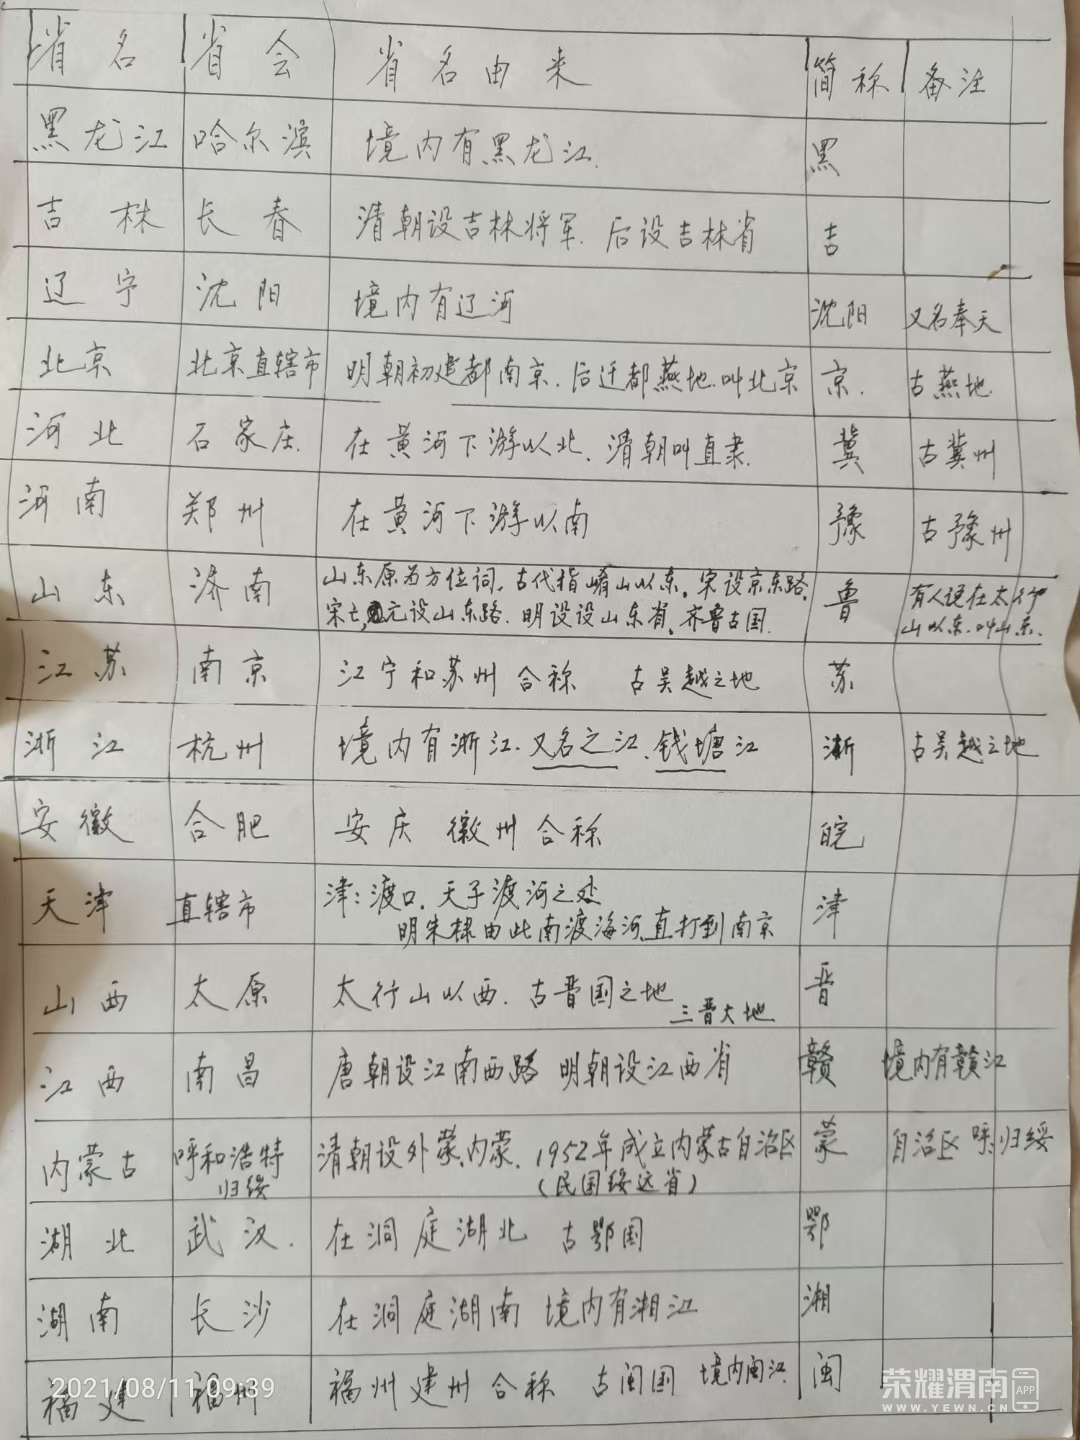 省名 省会 省名由来 简称 备注
黑龙江 哈尔滨 境内有黑龙江. 黑
吉林 长春 清朝设吉林将军. 后设吉林省 吉
辽宁 沈阳 境内有辽河 沈阳 又名奉天
北京 北京直辖市 明朝初建都南京.后迁都燕地.叫北京 京. 古燕地.
河北 石家庄. 在黄河下游以北.清朝叫直隶. 冀 古冀州
河南 郑州 在黄河下游以南 豫 古豫州
山东 济南 山东原为方位词,古代指崤山以东,宋设京东路,
宋亡,元设山东路.明设设山东省,齐鲁古国. 鲁 有人说在太行
山以东.叫山东.
江苏 南京 江宁和苏州合称 古吴越之地 苏
浙江 杭州 境内有浙江.又名之江.钱塘江 浙 古吴越之地
安徽 合肥 安庆 徽州合称 皖
天津 直辖市 津:渡口.天子渡河之处
明朱棣由此南渡海河直打到南京 津
山西 太原 太行山以西.古晋国之地
三晋大地 晋
江西 南昌 唐朝设江南西路 明朝设江西省 赣 境内有赣江
内蒙古 呼和浩特 清朝设外蒙、内蒙. 1952年成立内蒙古自治区 蒙 自治区 呼、归绥
归绥 (民国绥远省)
湖北 武汉. 在洞庭湖北 古鄂国 鄂
湖南 长沙 在洞庭湖南 境内有湘江 湘
福建 福州 福州建州合称 古闽国 境内闽江 闽
2021/08/11 09:39
荣耀渭南 APP
WWW.YEWN.CN